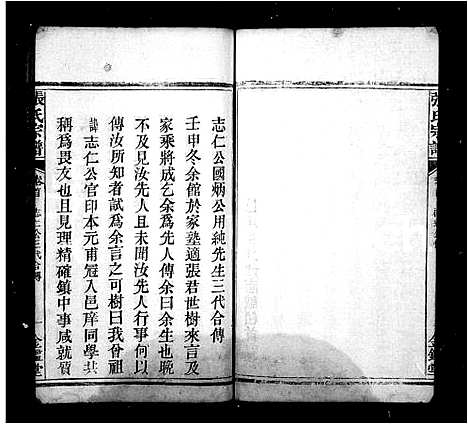 志仁公國炳公用純先生三代合傳
壬甲冬余館於家塾適張君世樹來言及
家乘將成乞余為先人傳余曰余生也晚
不及見汝先人且未聞汝先人行事何以
傳汝所知者試為余言之可樹曰我曾祖
諱志仁公官印本元甫冠入邑庠同學共
稱為畏友也且見理精確鎮中事咸就質
張氏宗譜
卷首
志仁公三代合傳
一
金鑑堂
張氏宗譜